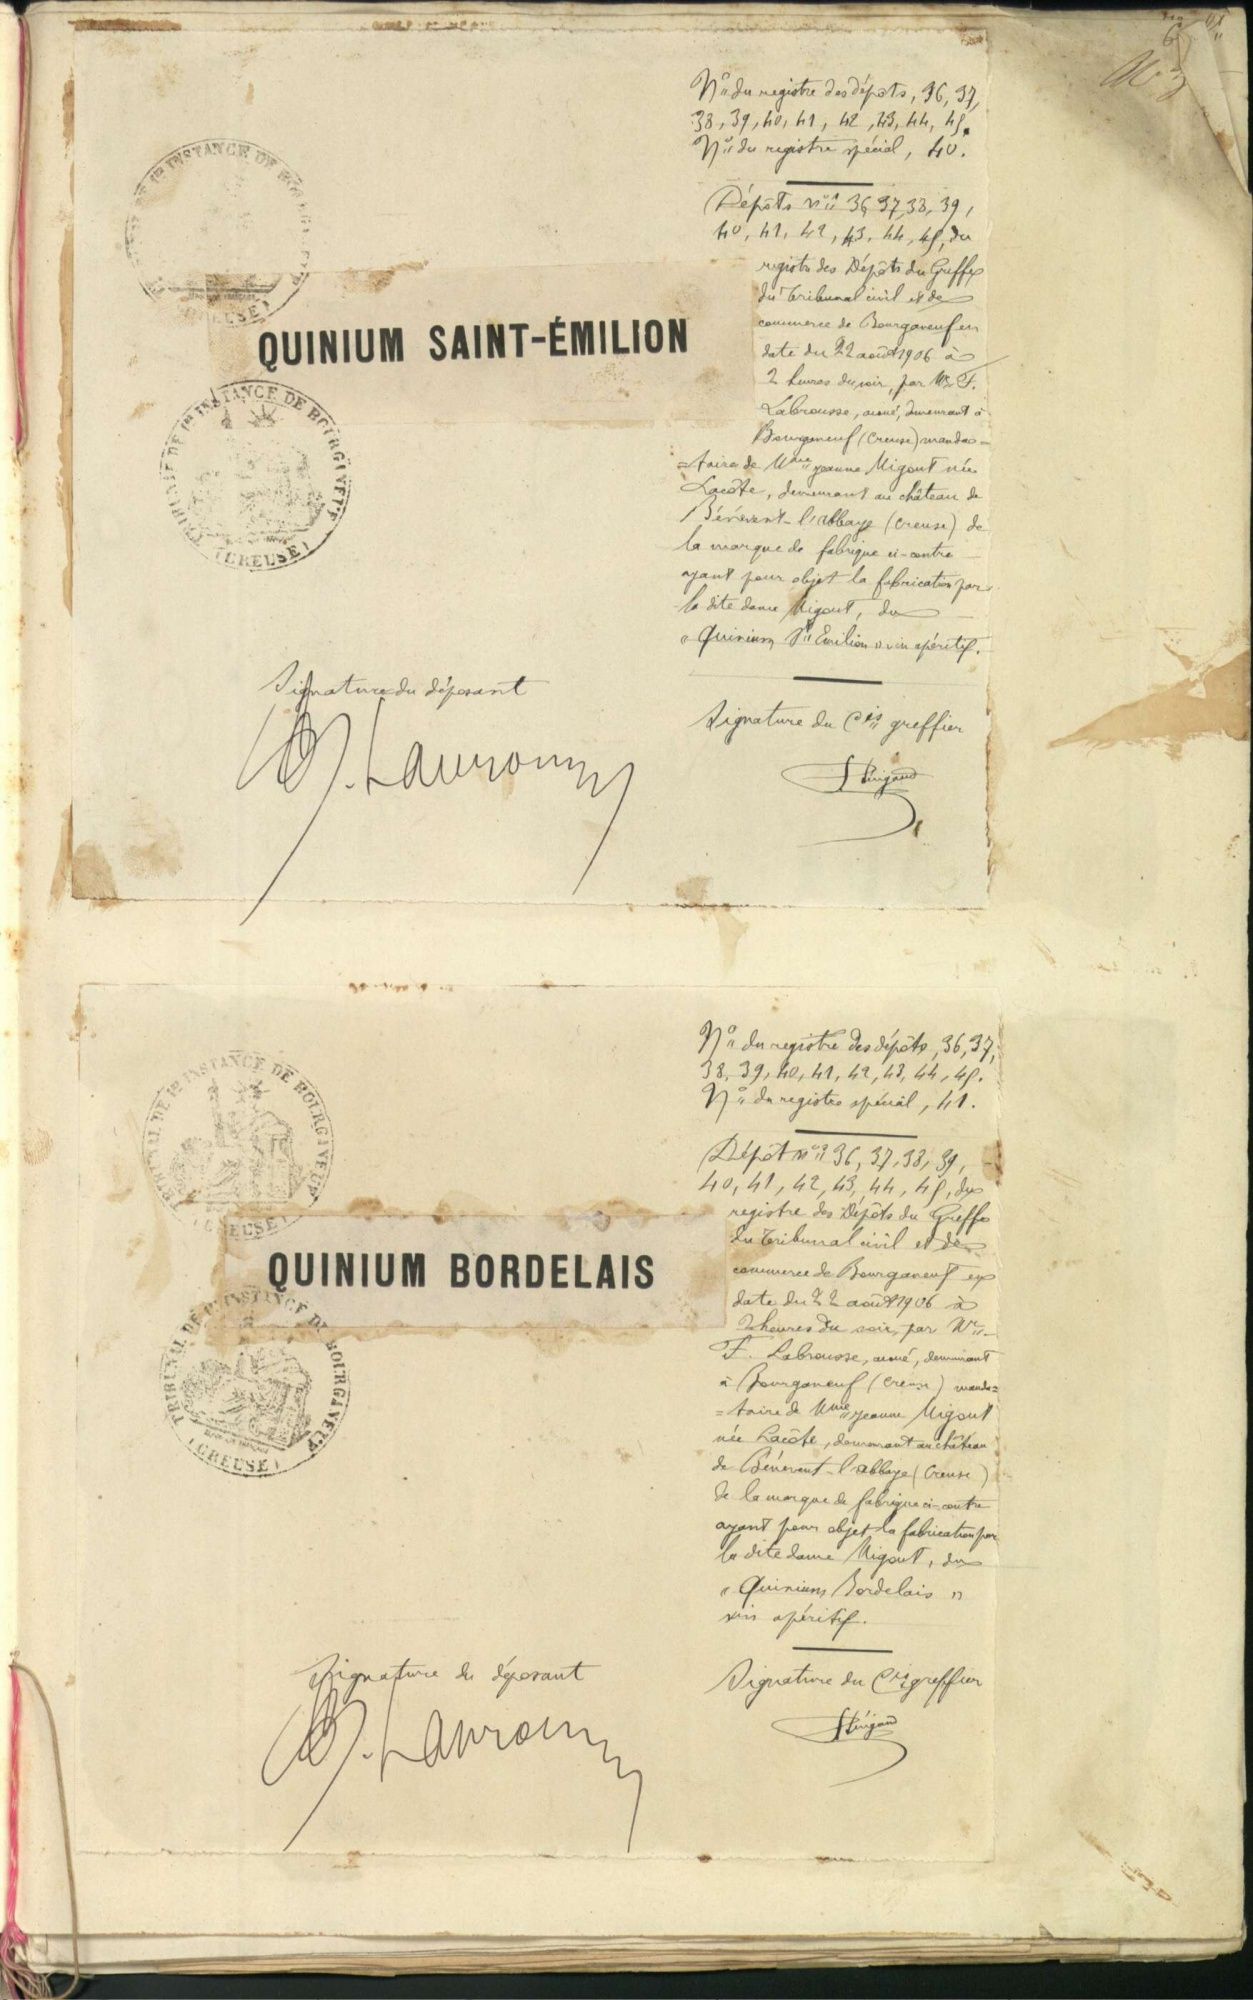 Nos du registre des dépôts, 36, 37,
38, 39, 40, 41, 42, 43, 44, 45.
No du registre spécial, 40.
Dépôts nos 36, 37, 38, 39,
40, 41, 42, 43, 44, 45, du
registre des Dépôts du Greffe
du Tribunal civil et de
commerce de Bourganeuf en
date du 22 août 1906 à
2 heures du soir, par Me F.
Labrousse, avoué, demeurant à
Bourganeuf (Creuse) manda=
=taire de Mme Jeanne Migout née
Lacôte, demeurant au château de
Bénévent-l'abbaye (Creuse) de
la marque de fabrique ci-contre
ayant pour objet la fabrication par
la dite dame Migout, du
"Quinium St Emilion" vin apéritif.
TRIBUNAL DE 1re INSTANCE DE BOURGANEUF
(CREUSE)
QUINIUM SAINT-ÉMILION
TRIBUNAL DE 1re INSTANCE DE BOURGANEUF
(CREUSE)
Signature du déposant
Signature du Cis greffier
No du registre des dépôts, 36, 37,
38, 39, 40, 41, 42, 43, 44, 45.
No du registre spécial, 41.
Dépôt nos 36, 37, 38, 39,
40, 41, 42, 43, 44, 45, du
registre des Dépôts du Greffe
du Tribunal civil et de
commerce de Bourganeuf en
date du 22 août 1906 à
2 heures du soir, par Me
F. Labrousse, avoué, demeurant
à Bourganeuf (Creuse) manda=
=taire de Mme Jeanne Migout
née Lacôte, demeurant au château
de Bénévent-l'abbaye (Creuse)
de la marque de fabrique ci-contre
ayant pour objet la fabrication par
la dite dame Migout, du
"Quinium Bordelais"
vin apéritif.
TRIBUNAL DE 1re INSTANCE DE BOURGANEUF
(CREUSE)
QUINIUM BORDELAIS
TRIBUNAL DE 1re INSTANCE DE BOURGANEUF
(CREUSE)
Signature du déposant
Signature du Cis greffier